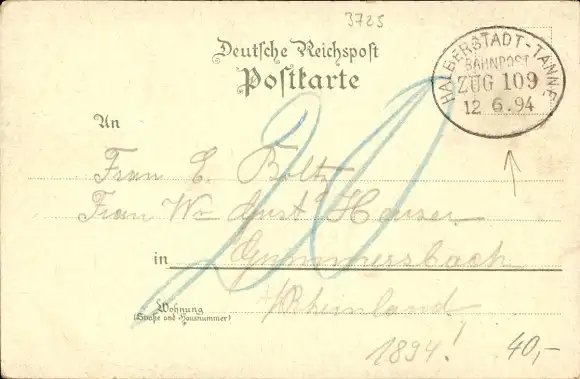 3725
Deutsche Reichspost
Postkarte
HALBERSTADT-TANNE
BAHNPOST
ZUG 109
12 6.94
20
An
Frau E.
Frau Wn Aust Hauser
in Gummersbach
Wohnung
(Straße und Hausnummer)
Rheinland
1894!
40,-